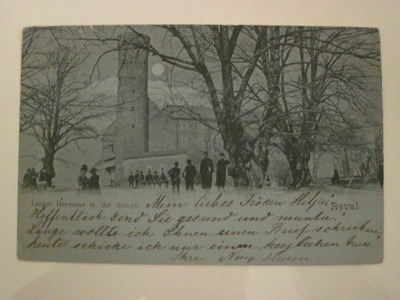 Langer Hermann m. der Anlage.
Reval
Mein liebes Fräken
Hoffentlich sind Sie gesund und munter!
Lange wollte ich Ihnen einen Brief schreiben,
heute schicke ich nur einen herzlichen Gruss
Ihre